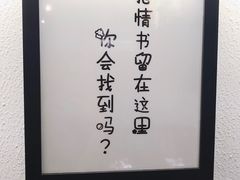 情书留在这里
你会找到吗？